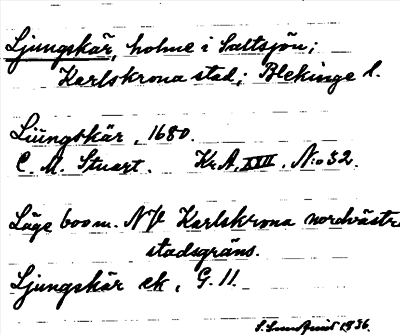 Ljungskär, holme i Saltsjön;
Karlskrona stad; Blekinge l.
Liüngskär, 1680.
C. M. Stuart. Kr.A. XXII. N:o 32.
Läge 600 m. NV Karlskrona nordvästra
stadsgräns.
Ljungskär ek, G. 11.
S. Lundquist 1936.